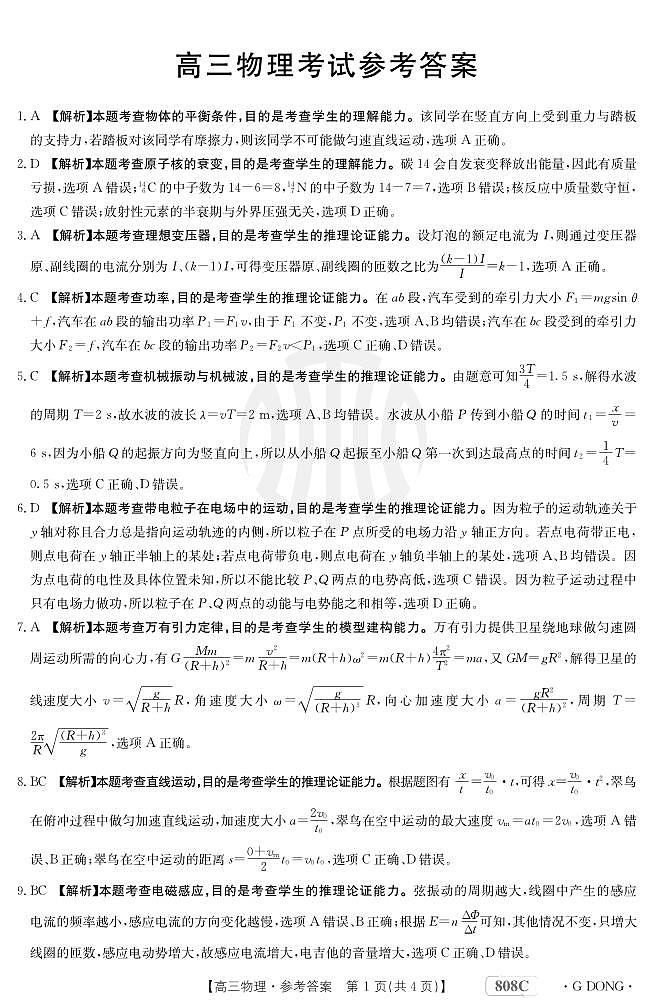 高三物理考试参考答案
1. A 【解析】本题考查物体的平衡条件,目的是考查学生的理解能力。该同学在竖直方向上受到重力与踏板
的支持力,若踏板对该同学有摩擦力,则该同学不可能做匀速直线运动,选项 A 正确。
2. D 【解析】本题考查原子核的衰变,目的是考查学生的理解能力。碳 14 会自发衰变释放出能量,因此有质量
亏损,选项 A 错误;¹⁴₆C 的中子数为 14−6=8,¹⁴₇N 的中子数为 14−7=7,选项 B 错误;核反应中质量数守恒,
选项 C 错误;放射性元素的半衰期与外界压强无关,选项 D 正确。
3. A 【解析】本题考查理想变压器,目的是考查学生的推理论证能力。设灯泡的额定电流为 I,则通过变压器
原、副线圈的电流分别为 I、(k−1)I,可得变压器原、副线圈的匝数之比为 (k−1)I/I=k−1,选项 A 正确。
4. C 【解析】本题考查功率,目的是考查学生的推理论证能力。在 ab 段,汽车受到的牵引力大小 F₁=mgsin θ
+f,汽车在 ab 段的输出功率 P₁=F₁v,由于 F₁ 不变,P₁ 不变,选项 A、B 均错误;汽车在 bc 段受到的牵引力
大小 F₂=f,汽车在 bc 段的输出功率 P₂=F₂v<P₁,选项 C 正确、D 错误。
5. C 【解析】本题考查机械振动与机械波,目的是考查学生的推理论证能力。由题意可知 3T/4=1.5 s,解得水波
的周期 T=2 s,故水波的波长 λ=vT=2 m,选项 A、B 均错误。水波从小船 P 传到小船 Q 的时间 t₁=x/v=
6 s,因为小船 Q 的起振方向为竖直向上,所以从小船 Q 起振至小船 Q 第一次到达最高点的时间 t₂=1/4 T=
0.5 s,选项 C 正确、D 错误。
6. D 【解析】本题考查带电粒子在电场中的运动,目的是考查学生的推理论证能力。因为粒子的运动轨迹关于
y 轴对称且合力总是指向运动轨迹的内侧,所以粒子在 P 点所受的电场力沿 y 轴正方向。若点电荷带正电,
则点电荷在 y 轴正半轴上的某处;若点电荷带负电,则点电荷在 y 轴负半轴上的某处,选项 A、B 均错误。因
为点电荷的电性及具体位置未知,所以不能比较 P、Q 两点的电势高低,选项 C 错误。因为粒子运动过程中
只有电场力做功,所以粒子在 P、Q 两点的动能与电势能之和相等,选项 D 正确。
7. A 【解析】本题考查万有引力定律,目的是考查学生的模型建构能力。万有引力提供卫星绕地球做匀速圆
周运动所需的向心力,有 G Mm/(R+h)²=m v²/(R+h)=m(R+h)ω²=m(R+h) 4π²/T²=ma,又 GM=gR²,解得卫星的
线速度大小 v=√(g/(R+h)) R,角速度大小 ω=√(g/(R+h)³) R,向心加速度大小 a=gR²/(R+h)²,周期 T=
2π/R √((R+h)³/g),选项 A 正确。
8. BC 【解析】本题考查直线运动,目的是考查学生的推理论证能力。根据题图有 x/t=v₀/t₀·t,可得 x=v₀/t₀·t²,翠鸟
在俯冲过程中做匀加速直线运动,加速度大小 a=2v₀/t₀,翠鸟在空中运动的最大速度 vₘ=at₀=2v₀,选项 A 错
误、B 正确;翠鸟在空中运动的距离 s=(0+vₘ)/2 t₀=v₀t₀,选项 C 正确、D 错误。
9. BC 【解析】本题考查电磁感应,目的是考查学生的推理论证能力。弦振动的周期越大,线圈中产生的感应
电流的频率越小,感应电流的方向变化越慢,选项 A 错误、B 正确;根据 E=n ΔΦ/Δt 可知,其他情况不变,只增大
线圈的匝数,感应电动势增大,故感应电流增大,电吉他的音量增大,选项 C 正确、D 错误。
【高三物理·参考答案 第 1 页(共 4 页)】 808C ·G DONG·